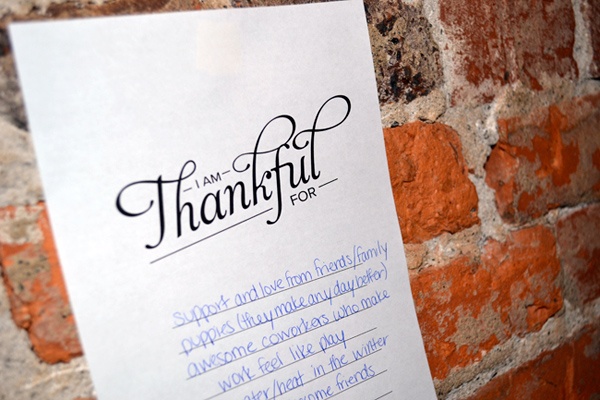 I AM
Thankful
FOR
support and love from friends/family
puppies (they make any day better)
awesome coworkers who make
work feel like play
/heat in the winter
friends